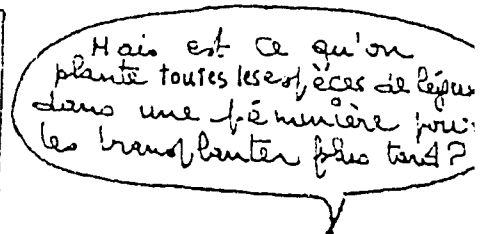 Mais est ce qu'on
plante toutes les espèces de légu
dans une péminière pour
les transplanter plus tard?